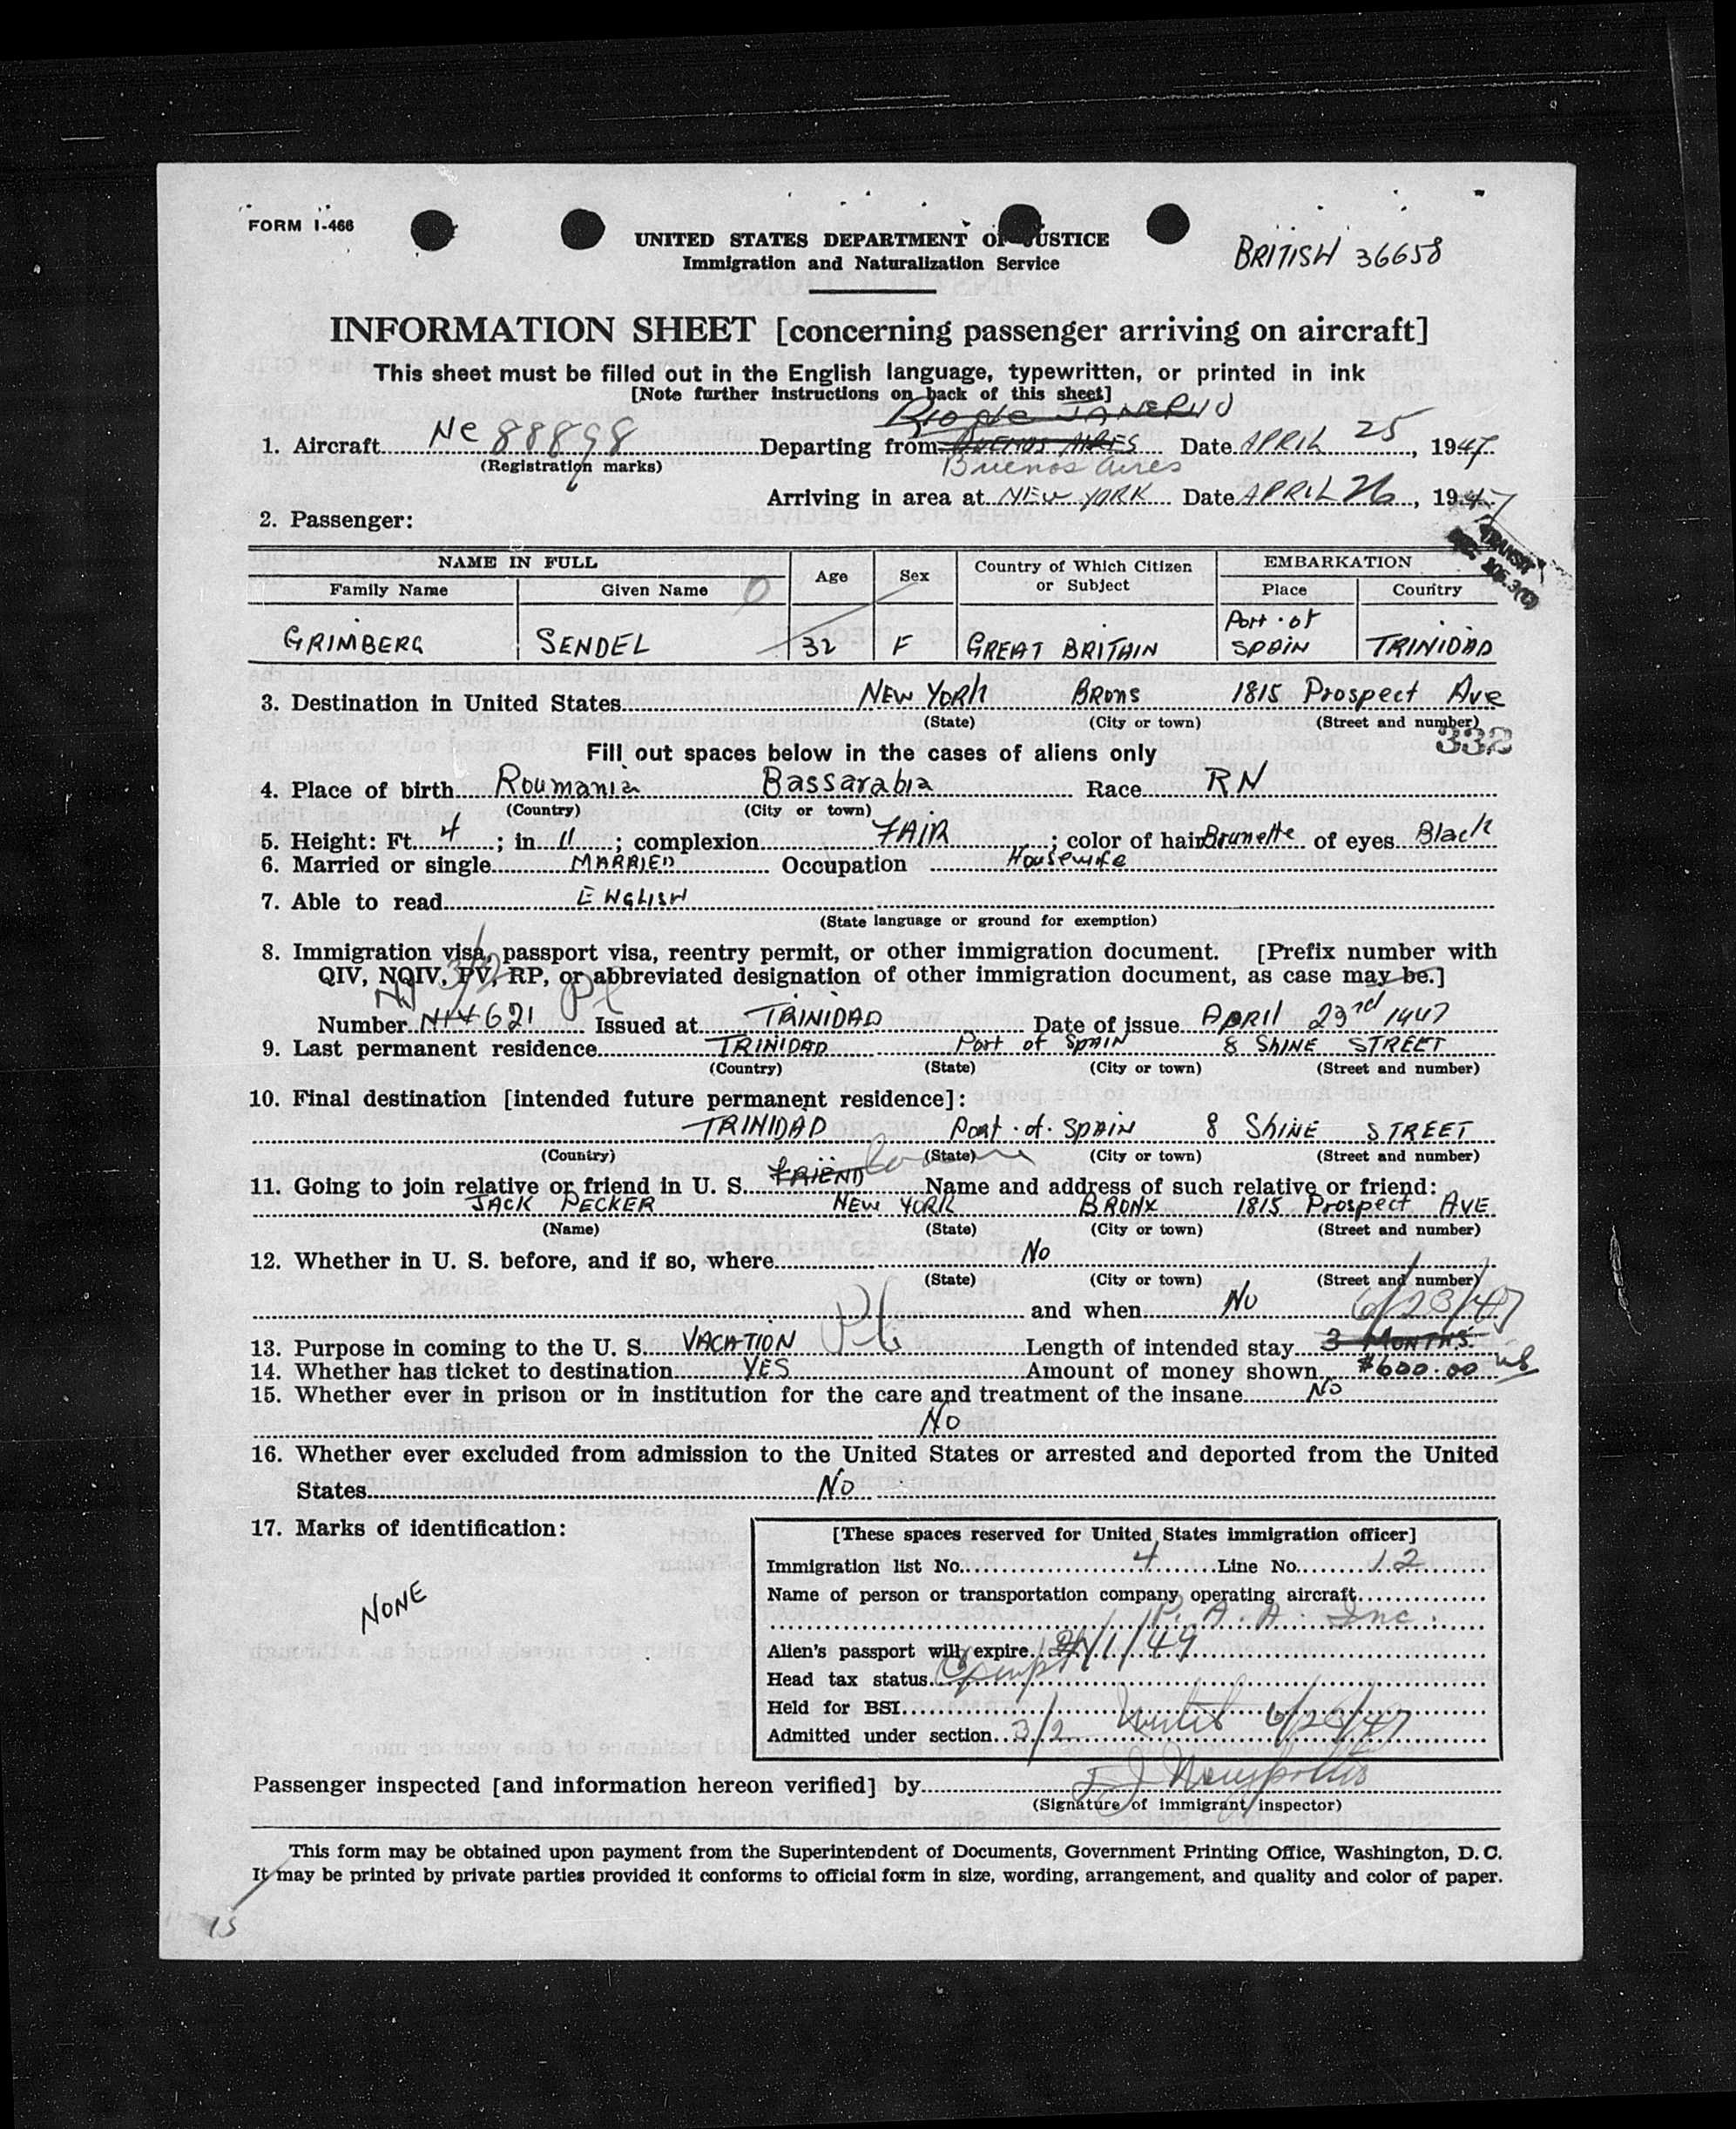 FORM I-466
UNITED STATES DEPARTMENT OF JUSTICE
Immigration and Naturalization Service
BRITISH 36658
INFORMATION SHEET [concerning passenger arriving on aircraft]
This sheet must be filled out in the English language, typewritten, or printed in ink
[Note further instructions on back of this sheet]
Rio de JANERIO
1. Aircraft NC 88898 Departing from BUENOS AIRES Date APRIL 25, 1947
(Registration marks) Buenos Aires
Arriving in area at NEW YORK Date APRIL 26, 1947
2. Passenger:
TRANSIT
NAME IN FULL Age Sex Country of Which Citizen or Subject EMBARKATION
Family Name Given Name Place Country
GRIMBERG SENDEL 32 F GREAT BRITAIN Port of SPAIN TRINIDAD
3. Destination in United States NEW YORK Brons 1815 Prospect Ave
(State) (City or town) (Street and number)
332
Fill out spaces below in the cases of aliens only
4. Place of birth Roumania Bassarabia Race RN
(Country) (City or town)
5. Height: Ft. 4; in 11; complexion FAIR; color of hair Brunette of eyes Black
6. Married or single MARRIED Occupation Housewife
7. Able to read ENGLISH
(State language or ground for exemption)
8. Immigration visa, passport visa, reentry permit, or other immigration document. [Prefix number with
QIV, NQIV, PV, RP, or abbreviated designation of other immigration document, as case may be.]
3/2
Number NIV 621 Issued at TRINIDAD Date of issue APRIl 23rd 1947
9. Last permanent residence TRINIDAD Port of SPAIN 8 ShINE STREET
(Country) (State) (City or town) (Street and number)
10. Final destination [intended future permanent residence]:
TRINIDAD Port.of.SPAIN 8 ShINE STREET
(Country) (State) (City or town) (Street and number)
11. Going to join relative or friend in U. S. FRIEND Name and address of such relative or friend:
JACK PECKER NEW YORK BRONX 1815 Prospect AVE
(Name) (State) (City or town) (Street and number)
12. Whether in U. S. before, and if so, where No
(State) (City or town) (Street and number)
and when No 6/23/47
13. Purpose in coming to the U. S. VACATION Length of intended stay 3 MONTHS.
14. Whether has ticket to destination YES Amount of money shown $600.00
15. Whether ever in prison or in institution for the care and treatment of the insane No
No
16. Whether ever excluded from admission to the United States or arrested and deported from the United
States No
17. Marks of identification:
NONE
[These spaces reserved for United States immigration officer]
Immigration list No. 4 Line No. 12
Name of person or transportation company operating aircraft
P. A. A. Inc.
Alien's passport will expire 1/49
Head tax status
Held for BSI
Admitted under section 3/2 until 6/23/47
Passenger inspected [and information hereon verified] by
(Signature of immigrant inspector)
This form may be obtained upon payment from the Superintendent of Documents, Government Printing Office, Washington, D. C.
It may be printed by private parties provided it conforms to official form in size, wording, arrangement, and quality and color of paper.
15